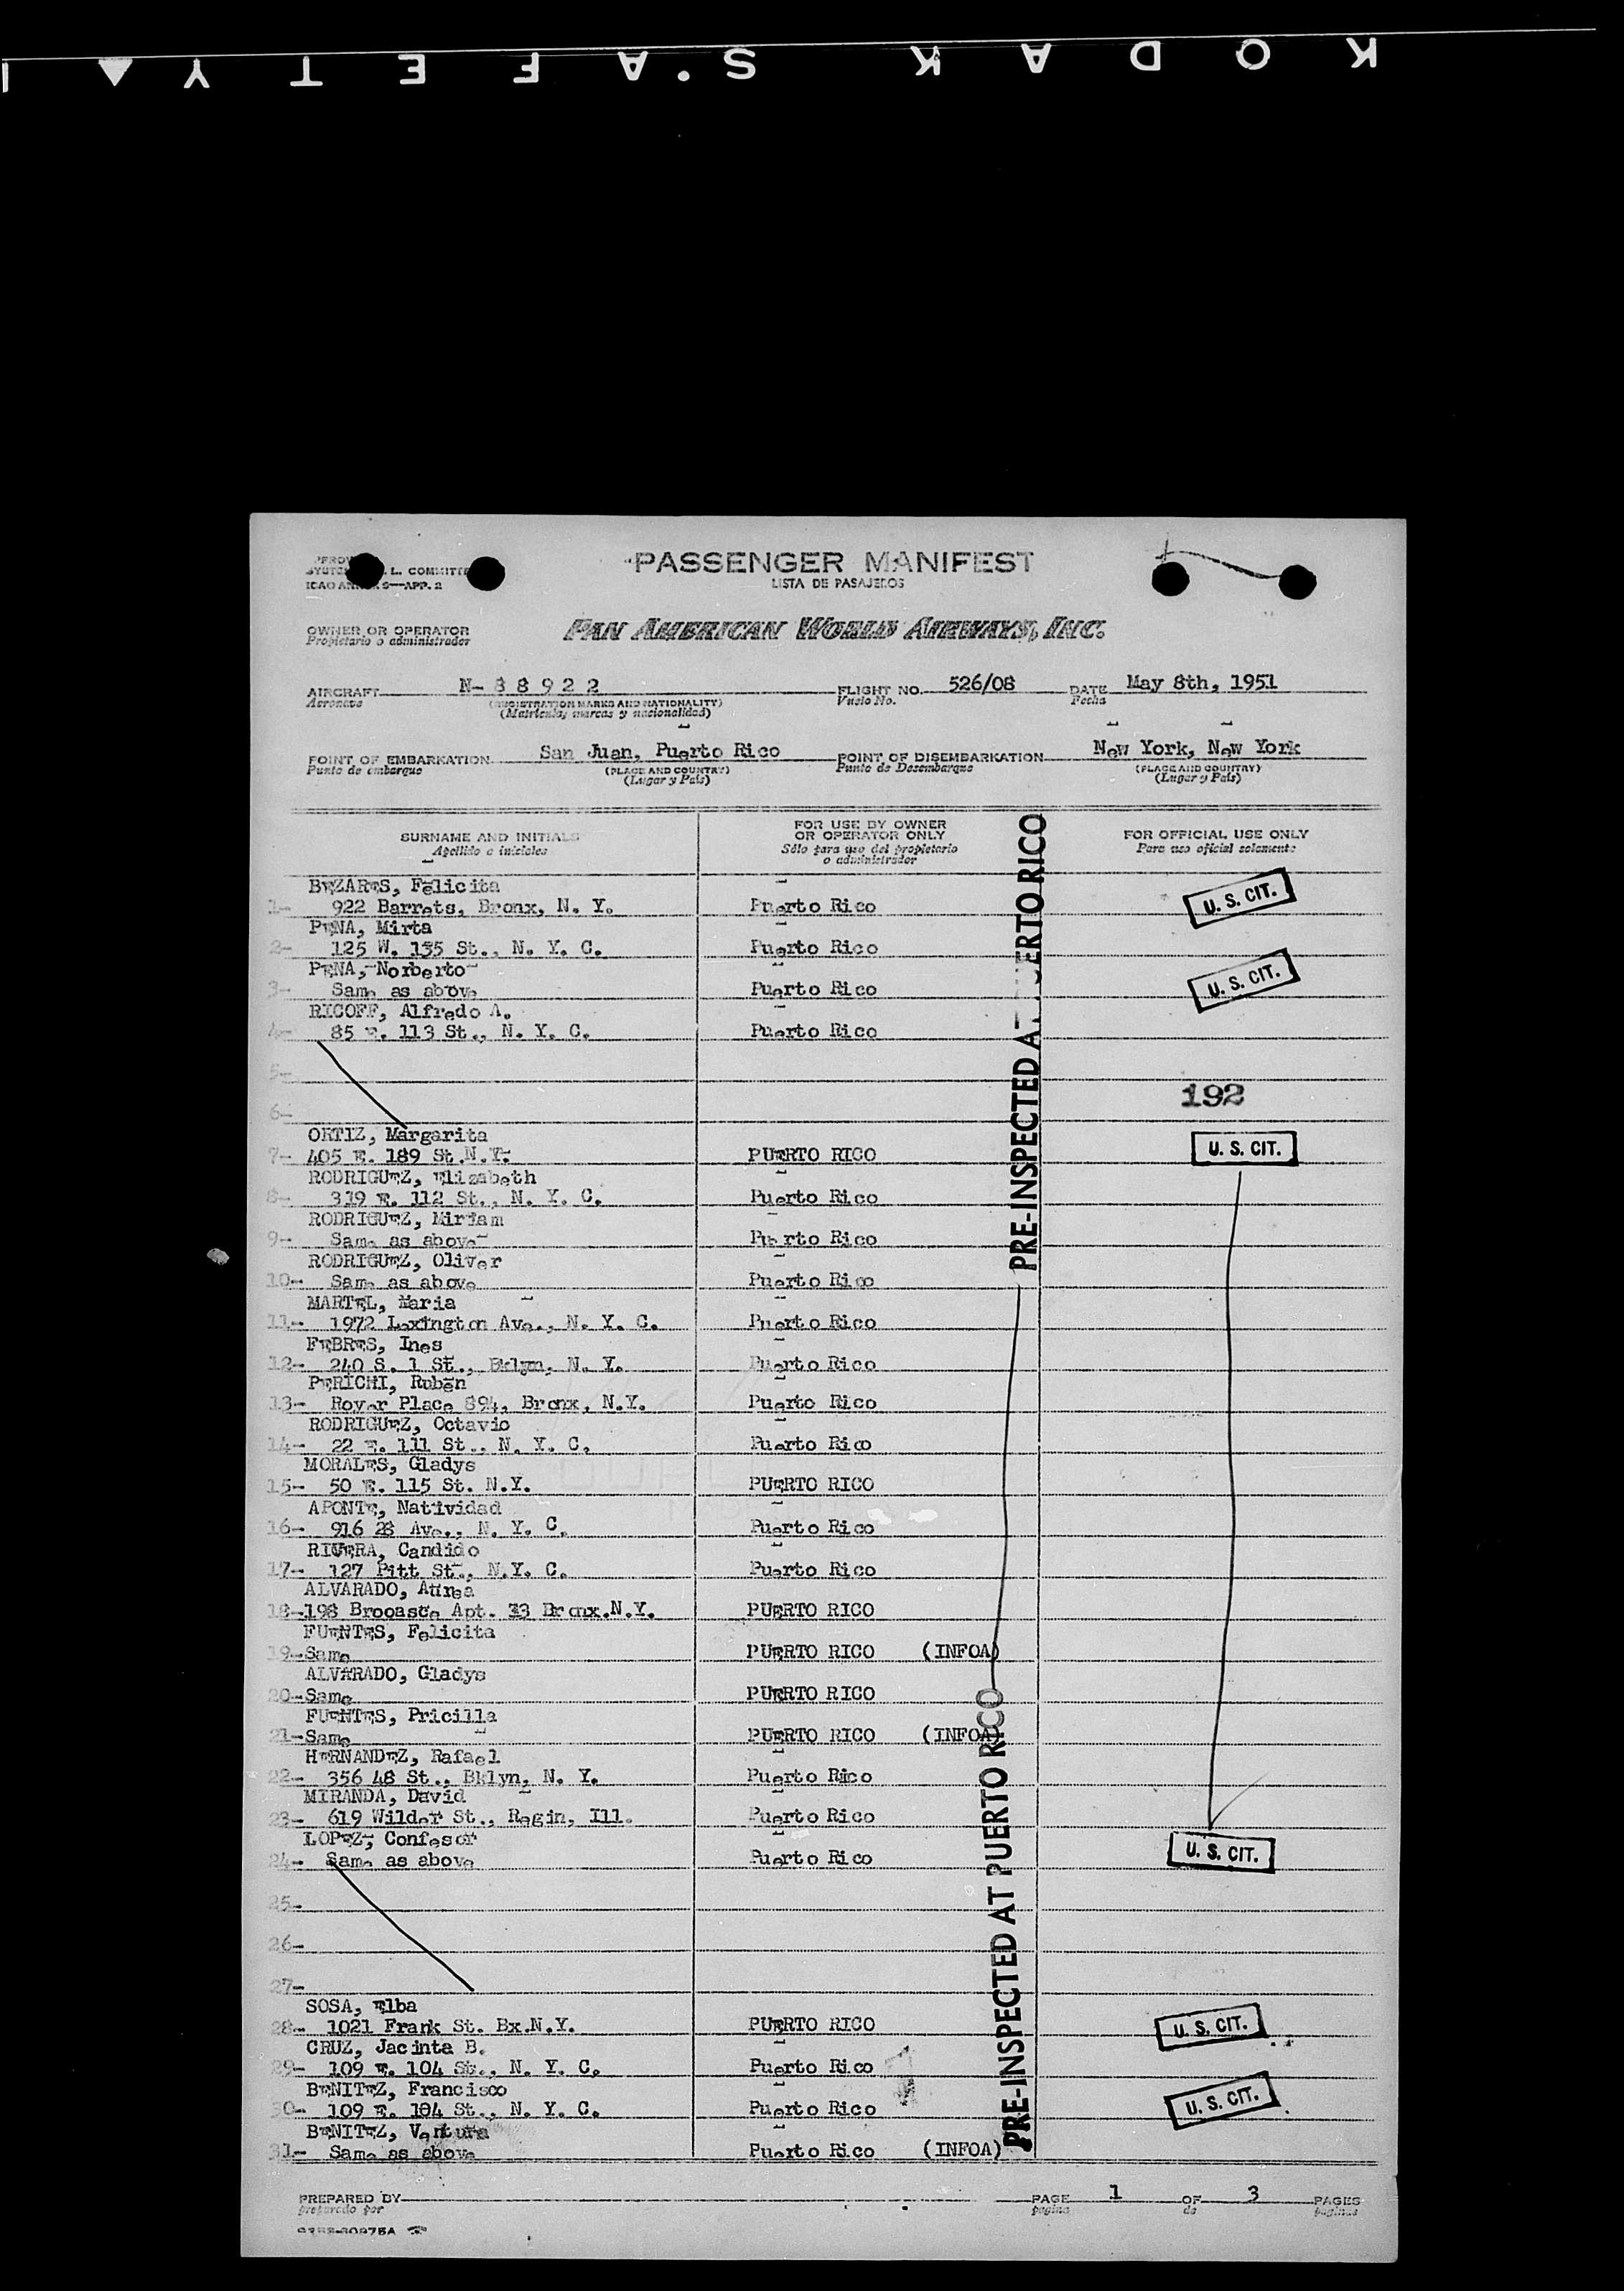 KODAK S.A.FETY
PASSENGER MANIFEST
LISTA DE PASAJEROS
L. COMMITTE
APP. 2
OWNER OR OPERATOR
Propietario o administrador
PAN AMERICAN WORLD AIRWAYS, INC.
AIRCRAFT N-88922 FLIGHT NO. 526/08 DATE May 8th, 1951
Aeronave (REGISTRATION MARKS AND NATIONALITY) Vuelo No. Fecha
(Matricula, marcas y nacionalidad)
POINT OF EMBARKATION San Juan, Puerto Rico POINT OF DISEMBARKATION New York, New York
Punto de embarque (PLACE AND COUNTRY) Punto de Desembarque (PLACE AND COUNTRY)
(Lugar y País) (Lugar y País)
SURNAME AND INITIALS
Apellido e iniciales
FOR USE BY OWNER
OR OPERATOR ONLY
Sólo para uso del propietario
o administrador
FOR OFFICIAL USE ONLY
Para uso oficial solamente
BEZARES, Felicita
1- 922 Barrets, Bronx, N. Y. Puerto Rico U. S. CIT.
PENA, Mirta
2- 125 W. 135 St., N. Y. C. Puerto Rico
PENA, Norberto
3- Same as above Puerto Rico U. S. CIT.
RICOFF, Alfredo A.
4- 85 E. 113 St., N. Y. C. Puerto Rico
5-
6- 192
ORTIZ, Margarita
7- 405 E. 189 St.N.Y. PUERTO RICO U. S. CIT.
RODRIGUEZ, Elizabeth
8- 319 E. 112 St., N. Y. C. Puerto Rico
RODRIGUEZ, Miriam
9- Same as above Puerto Rico
RODRIGUEZ, Oliver
10- Same as above Puerto Rico
MARTEL, Maria
11- 1972 Lexington Ave., N. Y. C. Puerto Rico
FEBRES, Ines
12- 240 S. 1 St., Bklyn, N. Y. Puerto Rico
PERICHI, Ruben
13- Rover Place 894, Bronx, N.Y. Puerto Rico
RODRIGUEZ, Octavio
14- 22 E. 111 St., N. Y. C. Puerto Rico
MORALES, Gladys
15- 50 E. 115 St. N.Y. PUERTO RICO
APONTE, Natividad
16- 916 28 Ave., N. Y. C. Puerto Rico
RIVERA, Candido
17- 127 Pitt St., N.Y. C. Puerto Rico
ALVARADO, Aurea
18- 198 Apt. 33 Bronx.N.Y. PUERTO RICO
FUENTES, Felicita
19- Same PUERTO RICO (INFOA)
ALVARADO, Gladys
20- Same PUERTO RICO
FUENTES, Pricilla
21- Same PUERTO RICO (INFOA)
HERNANDEZ, Rafael
22- 356 48 St., Bklyn, N. Y. Puerto Rico
MIRANDA, David
23- 619 Wilder St., Regin, Ill. Puerto Rico
LOPEZ, Confesor
24- Same as above Puerto Rico U. S. CIT.
25-
26-
27-
SOSA, Elba
28- 1021 Frank St. Bx.N.Y. PUERTO RICO U. S. CIT.
CRUZ, Jacinta B.
29- 109 E. 104 St., N. Y. C. Puerto Rico
BENITEZ, Francisco
30- 109 E. 104 St., N. Y. C. Puerto Rico U. S. CIT.
BENITEZ, Ventura
31- Same as above Puerto Rico (INFOA)
PRE-INSPECTED AT PUERTO RICO
PRE-INSPECTED AT PUERTO RICO
PREPARED BY PAGE 1 OF 3 PAGES
preparado por pagina de paginas